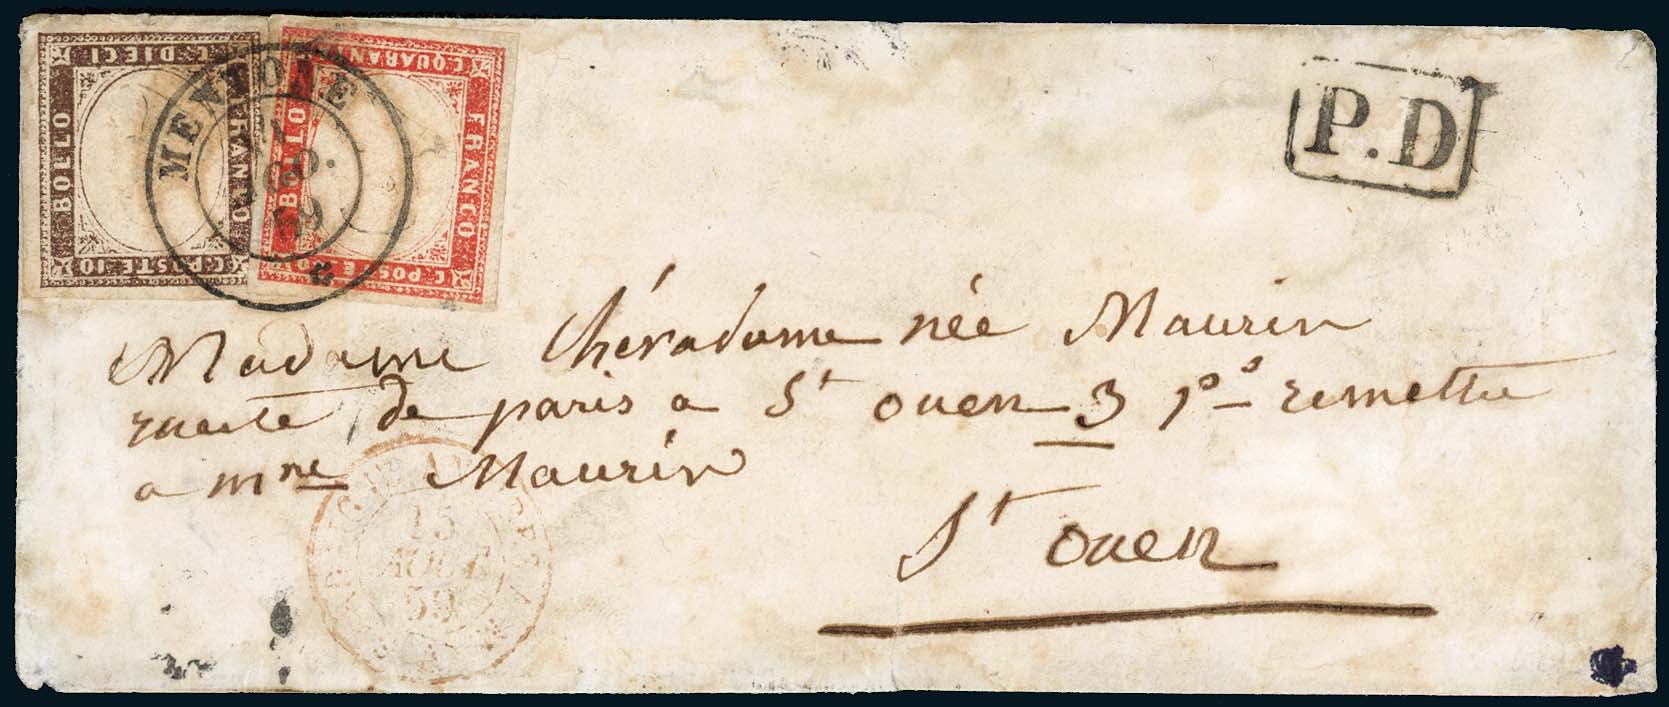 C. DIECI
BOLLO
FRANCO
C. POSTE 10
C. QUARAN
BOLLO
FRANCO
C. POSTE 40
MENTONE
AGO.
59
P.D
Madame Chéradame née Maurin
route de paris a St ouen 3 pr remettre
a mme Maurin
St ouen
15
AOUT
59